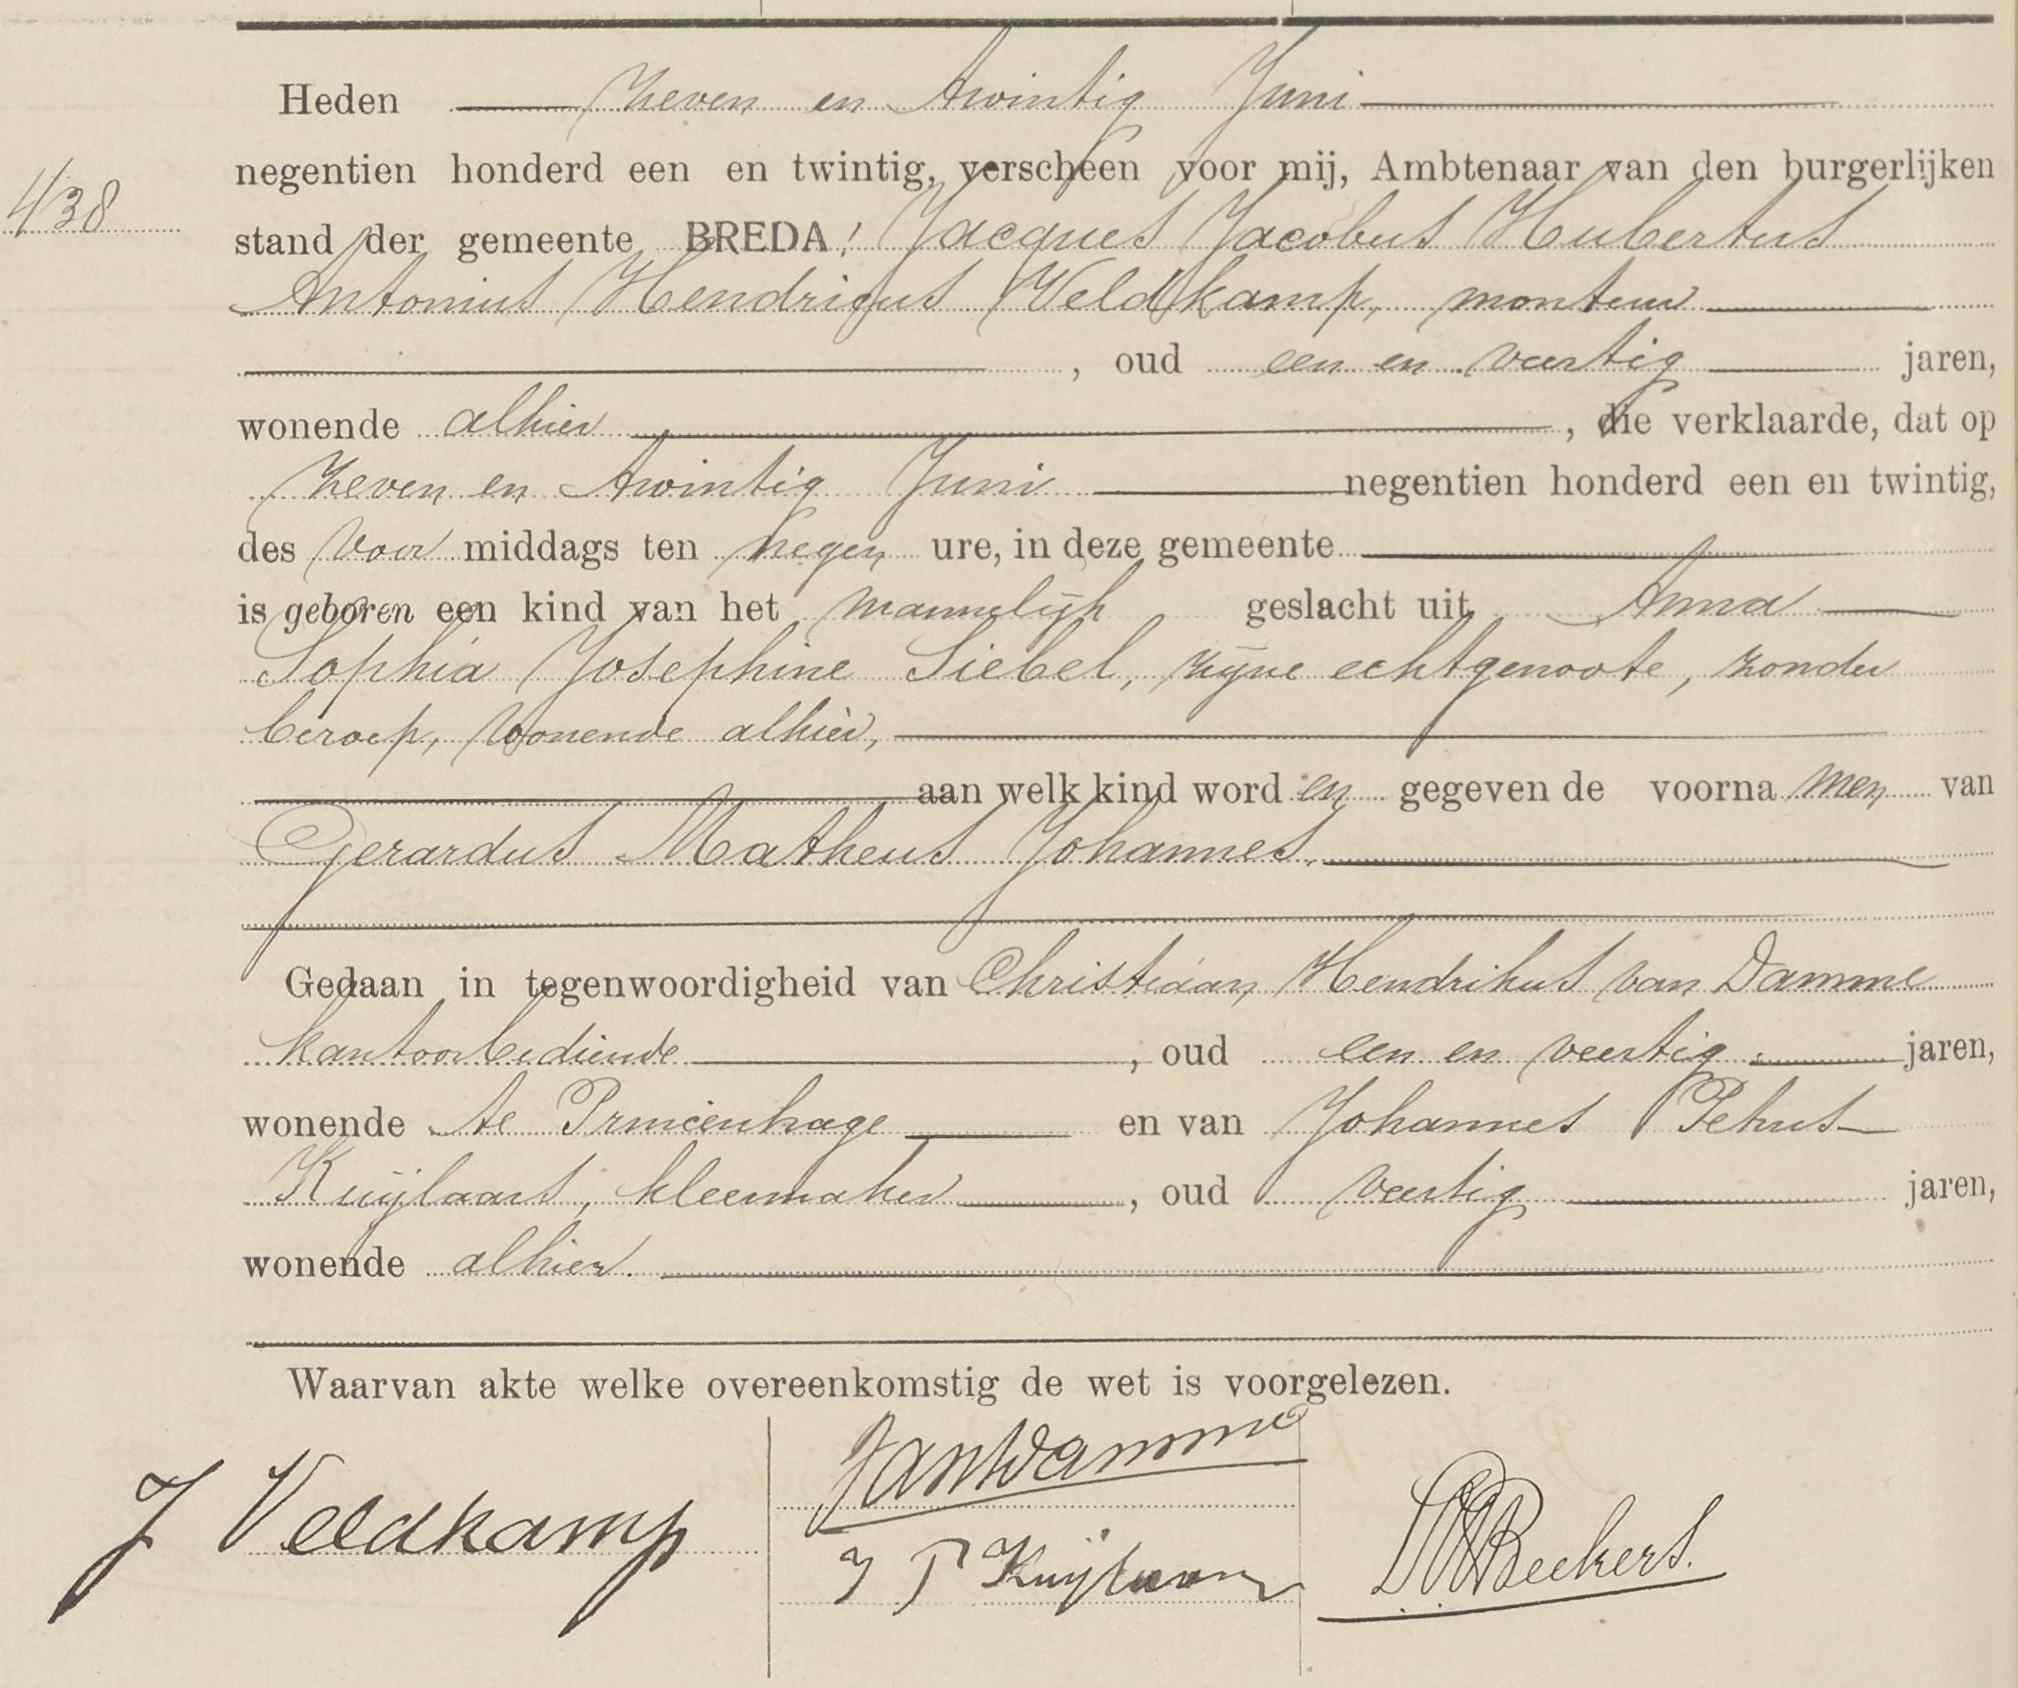 Heden zeven en twintig Juni
negentien honderd een en twintig, verscheen voor mij, Ambtenaar van den burgerlijken
438
stand der gemeente BREDA: Jacques Jacobus Hubertus
Antonius Hendricus Veldkamp, monteur
, oud een en veertig jaren,
wonende alhier , die verklaarde, dat op
zeven en twintig Juni negentien honderd een en twintig,
des voor middags ten negen ure, in deze gemeente
is geboren een kind van het mannelijk geslacht uit Anna
Sophia Josephine Siebel, zijne echtgenoote, zonder
beroep, wonende alhier,
aan welk kind word en gegeven de voorna men van
Gerardus Matheus Johannes.
Gedaan in tegenwoordigheid van Christiaan Hendrikus van Damme
kantoorbediende , oud een en veertig jaren,
wonende te Princenhage en van Johannes Petrus
Kuijlaars, kleermaker , oud veertig jaren,
wonende alhier.
Waarvan akte welke overeenkomstig de wet is voorgelezen.
J Veldkamp
J P Kuijlaars
Beckers.